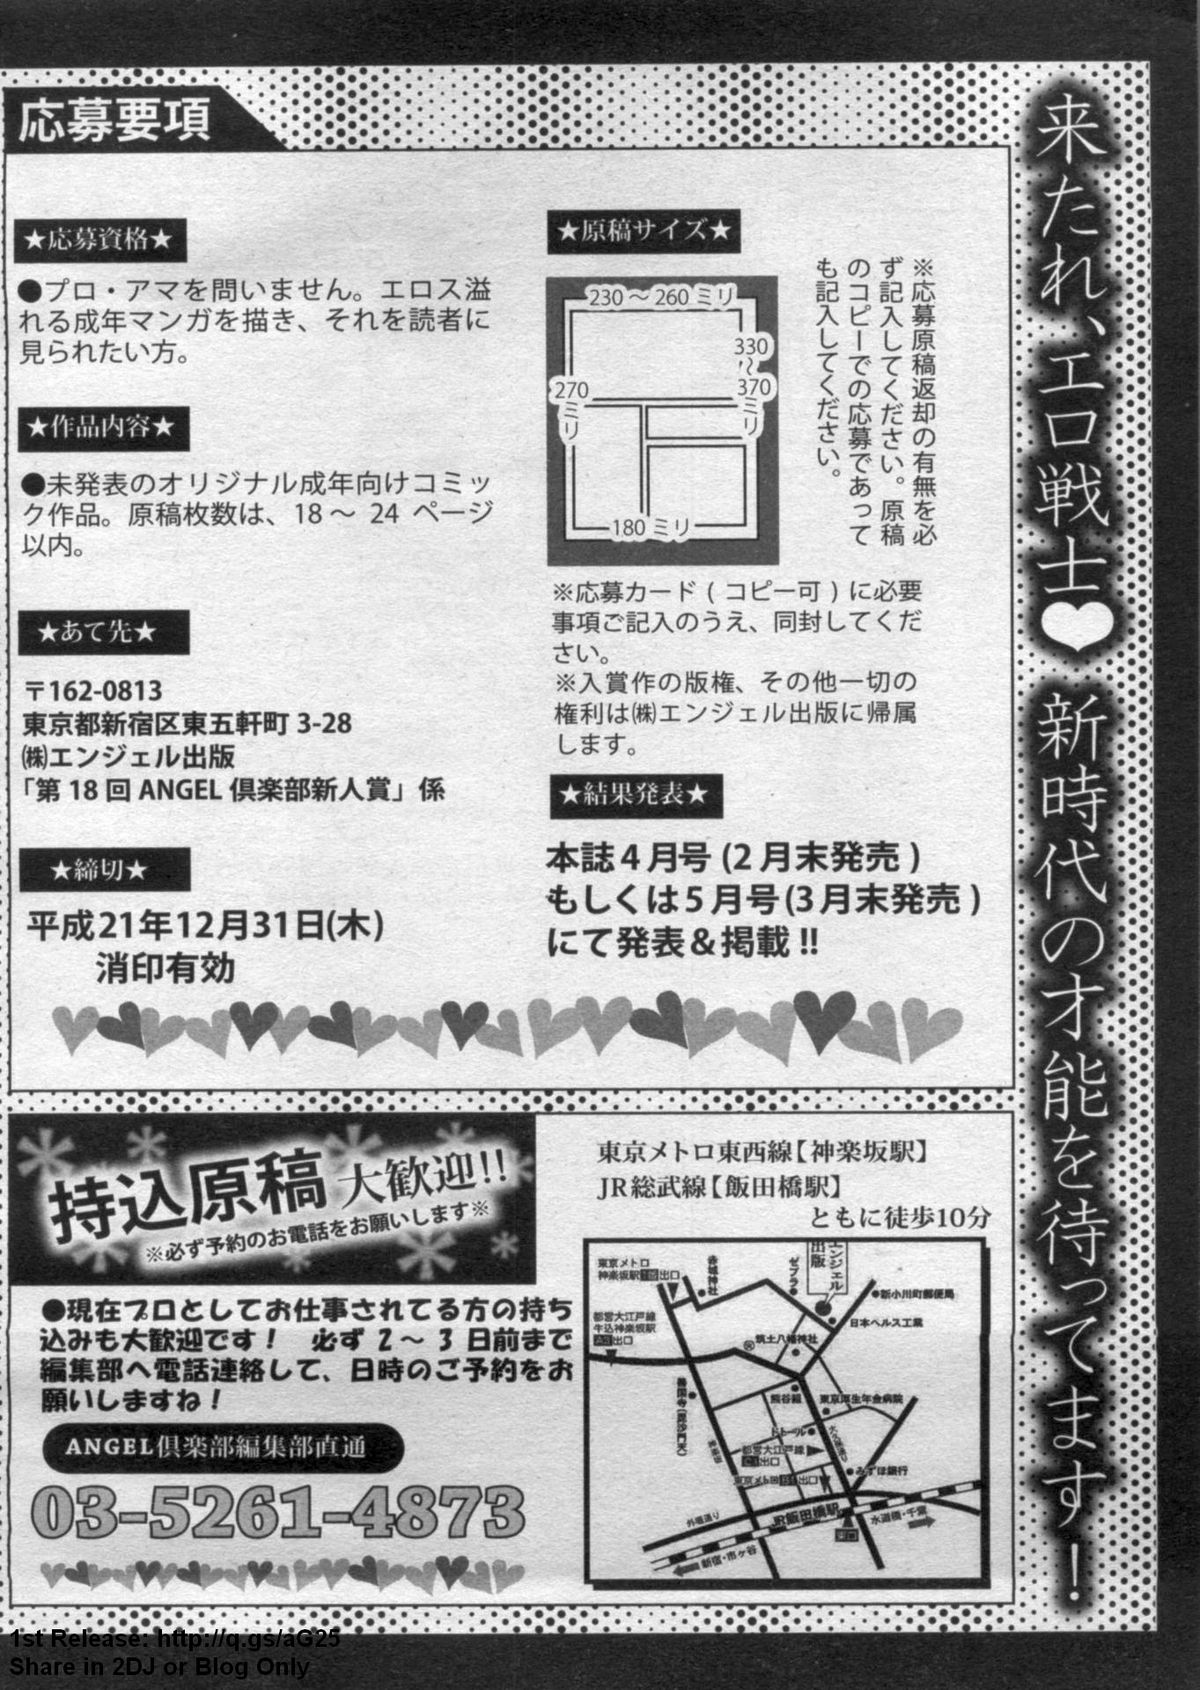 来たれ、エロ戦士♥新時代の才能を待ってます！
応募要項
★応募資格★
●プロ・アマを問いません。エロス溢
れる成年マンガを描き、それを読者に
見られたい方。
★作品内容★
●未発表のオリジナル成年向けコミッ
ク作品。原稿枚数は、18～24ページ
以内。
★あて先★
〒162-0813
東京都新宿区東五軒町3-28
㈱エンジェル出版
「第18回ANGEL倶楽部新人賞」係
★締切★
平成21年12月31日(木)
消印有効
★原稿サイズ★
230～260ミリ
330～370ミリ
270ミリ
180ミリ
※応募原稿返却の有無を必
ず記入してください。原稿
のコピーでの応募であって
も記入してください。
※応募カード(コピー可)に必要
事項ご記入のうえ、同封してくだ
さい。
※入賞作の版権、その他一切の
権利は㈱エンジェル出版に帰属
します。
★結果発表★
本誌4月号(2月末発売)
もしくは5月号(3月末発売)
にて発表＆掲載!!
持込原稿大歓迎!!
※必ず予約のお電話をお願いします※
●現在プロとしてお仕事されてる方の持ち
込みも大歓迎です！　必ず2～3日前まで
編集部へ電話連絡して、日時のご予約をお
願いしますね！
ANGEL倶楽部編集部直通
03-5261-4873
東京メトロ東西線【神楽坂駅】
JR総武線【飯田橋駅】
ともに徒歩10分
東京メトロ
神楽坂駅1b出口
赤城神社
ゼブラ
エンジェル
出版
新小川町郵便局
日本ヘルス工業
都営大江戸線
牛込神楽坂駅
A3出口
筑土八幡神社
善国寺(毘沙門天)
熊谷組
東京厚生年金病院
ドトール
都営大江戸線
C1出口
みずほ銀行
東京メトロB1出口
外堀通り
JR飯田橋駅
東口
水道橋・千葉
新宿・市ヶ谷
1st Release: http://q.gs/aG25
Share in 2DJ or Blog Only